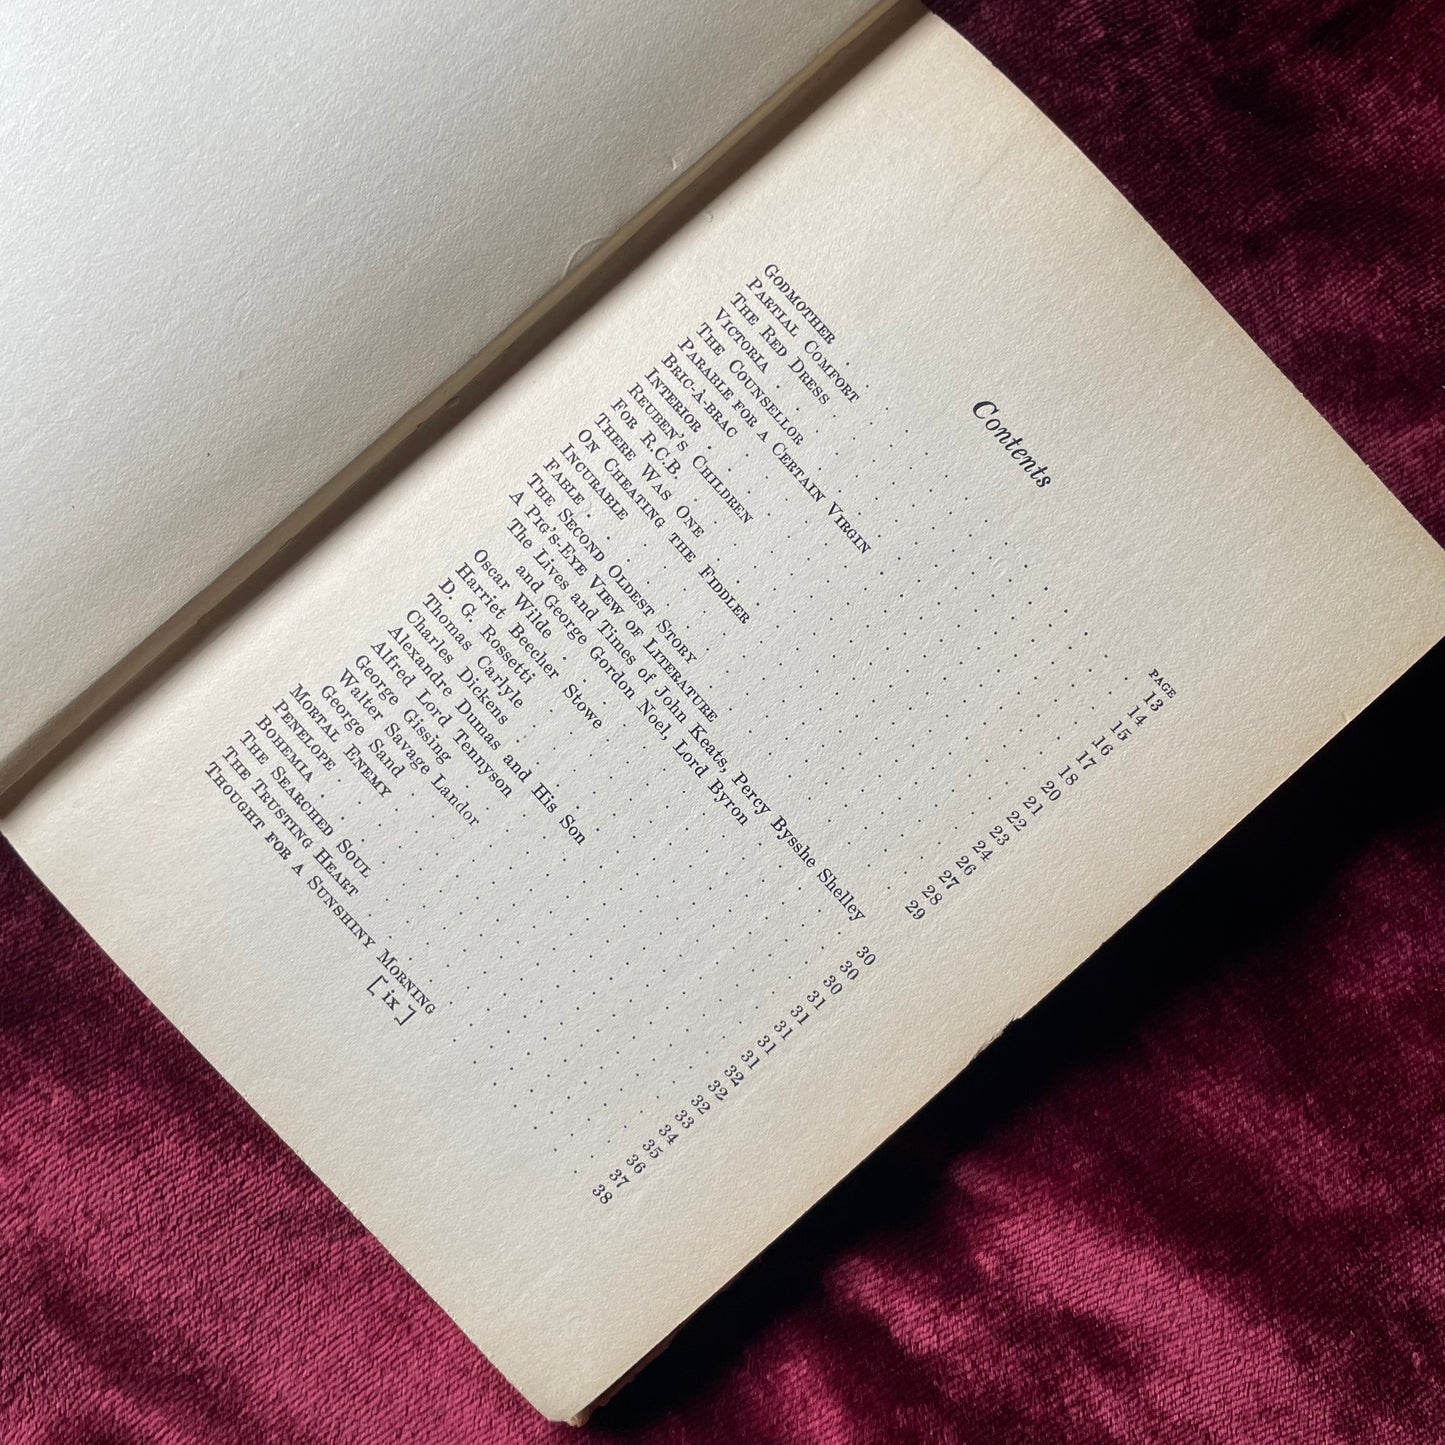 Contents
PAGE
GODMOTHER . . . . . . . . . . 13
PARTIAL COMFORT . . . . . . . . . . 14
THE RED DRESS . . . . . . . . . . 15
VICTORIA . . . . . . . . . . 16
THE COUNSELLOR . . . . . . . . . . 17
PARABLE FOR A CERTAIN VIRGIN . . . . . . . . . . 18
BRIC-À-BRAC . . . . . . . . . . 20
INTERIOR . . . . . . . . . . 21
REUBEN'S CHILDREN . . . . . . . . . . 22
FOR R.C.B. . . . . . . . . . . 23
THERE WAS ONE . . . . . . . . . . 24
ON CHEATING THE FIDDLER . . . . . . . . . . 26
INCURABLE . . . . . . . . . . 27
FABLE . . . . . . . . . . 28
THE SECOND OLDEST STORY . . . . . . . . . . 29
A PIG'S-EYE VIEW OF LITERATURE
The Lives and Times of John Keats, Percy Bysshe Shelley
and George Gordon Noel, Lord Byron . . . . . 30
Oscar Wilde . . . . . . . . . . 30
Harriet Beecher Stowe . . . . . . . . . . 30
D. G. Rossetti . . . . . . . . . . 31
Thomas Carlyle . . . . . . . . . . 31
Charles Dickens . . . . . . . . . . 31
Alexandre Dumas and His Son . . . . . . . . . . 31
Alfred Lord Tennyson . . . . . . . . . . 31
George Gissing . . . . . . . . . . 32
Walter Savage Landor . . . . . . . . . . 32
George Sand . . . . . . . . . . 32
MORTAL ENEMY . . . . . . . . . . 33
PENELOPE . . . . . . . . . . 34
BOHEMIA . . . . . . . . . . 35
THE SEARCHED SOUL . . . . . . . . . . 36
THE TRUSTING HEART . . . . . . . . . . 37
THOUGHT FOR A SUNSHINY MORNING . . . . . . . . . . 38
[ ix ]